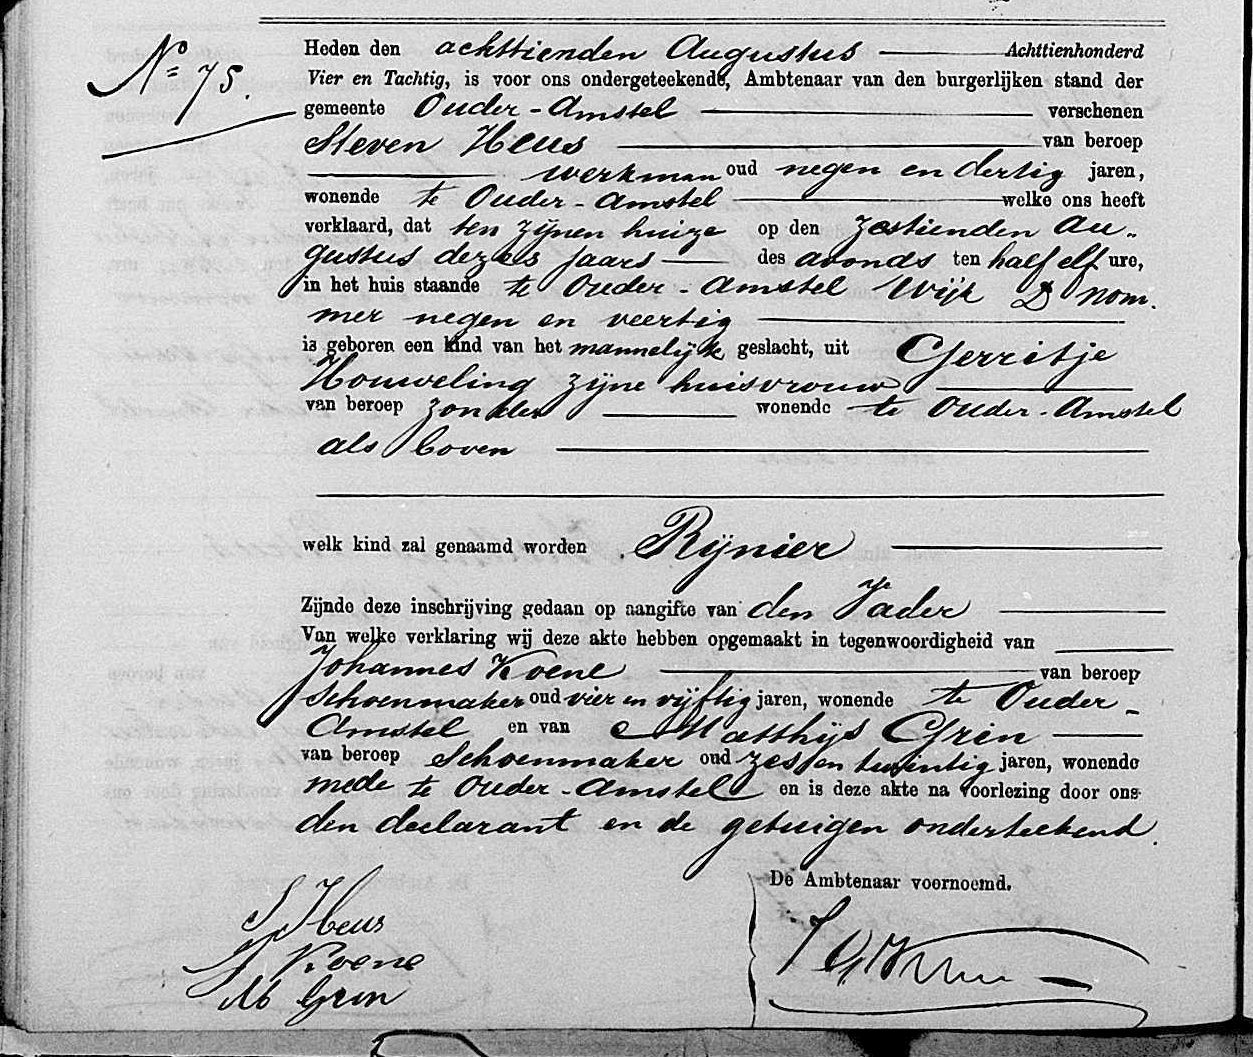 No 75.
Heden den achttienden Augustus Achttienhonderd
Vier en Tachtig, is voor ons ondergeteekende, Ambtenaar van den burgerlijken stand der
gemeente Ouder-Amstel verschenen
Steven Heus van beroep
werkman oud negen en dertig jaren,
wonende te Ouder-Amstel welke ons heeft
verklaard, dat ten zijnen huize op den zestienden Au-
gustus dezes jaars des avonds ten half elf ure,
in het huis staande te Ouder-Amstel Wijk D nom-
mer negen en veertig
is geboren een kind van het mannelijk geslacht, uit Gerritje
Houweling zijne huisvrouw
van beroep zonder wonende te Ouder-Amstel
als boven
welk kind zal genaamd worden Rijnier
Zijnde deze inschrijving gedaan op aangifte van den Vader
Van welke verklaring wij deze akte hebben opgemaakt in tegenwoordigheid van
Johannes Koene van beroep
Schoenmaker oud vier en vijftig jaren, wonende te Ouder-
Amstel en van Matthijs Grin
van beroep Schoenmaker oud zes en twintig jaren, wonende
mede te Ouder-Amstel en is deze akte na voorlezing door ons
den declarant en de getuigen onderteekend.
De Ambtenaar voornoemd.
S Heus
J Koene
M Grin